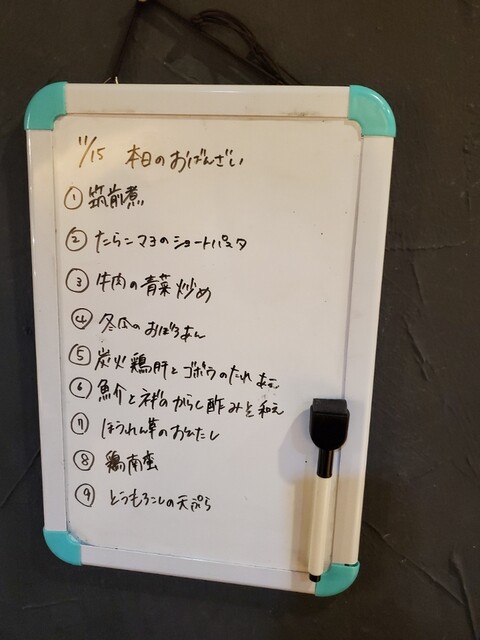 11/15 本日のおばんざい
① 筑前煮
② たらこマヨのショートパスタ
③ 牛肉の青菜炒め
④ 冬瓜のおぼろあん
⑤ 炭火鶏肝とゴボウのたれあえ
⑥ 魚介とネギのからし酢みそ和え
⑦ ほうれん草のおひたし
⑧ 鶏南蛮
⑨ とうもろこしの天ぷら